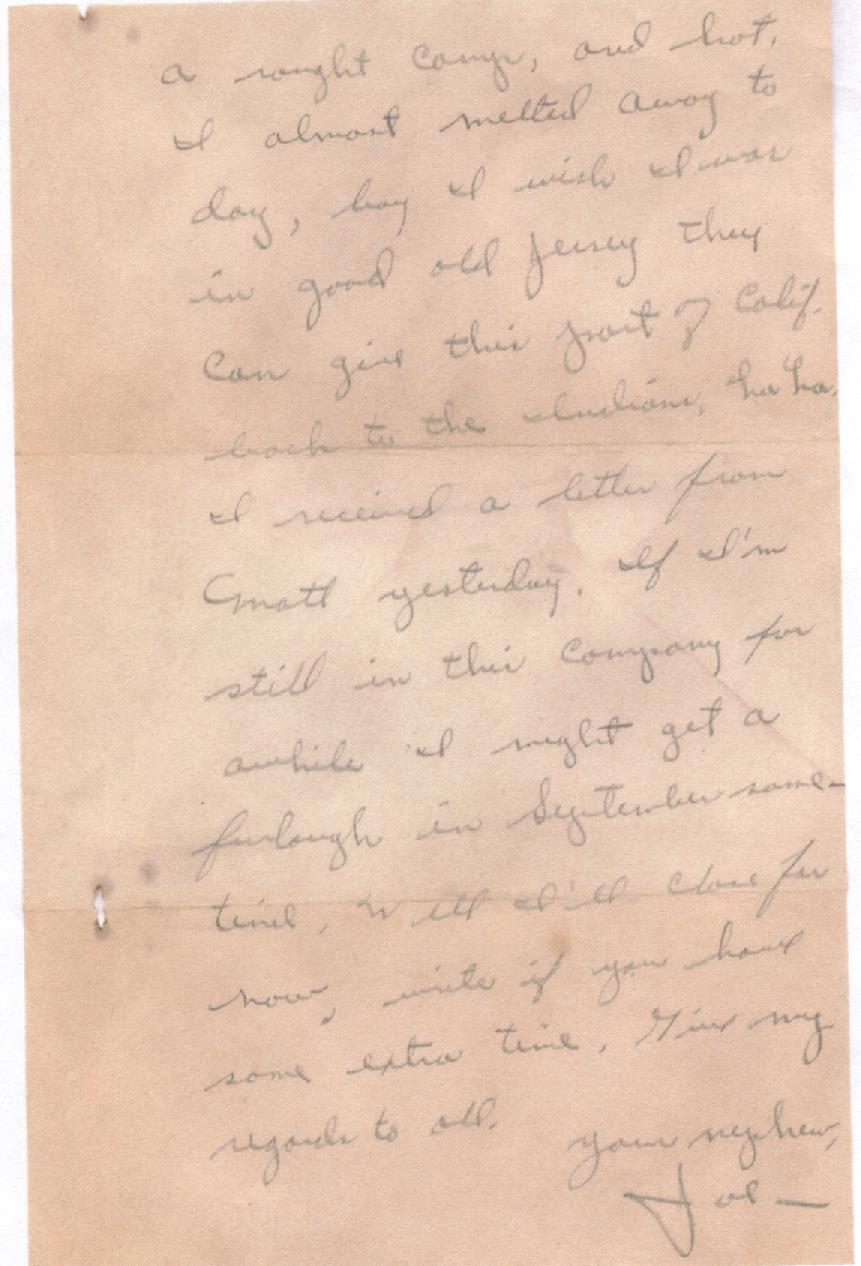 a rought camp, and hot.
I almost melted away to
day, boy I wish I was
in good old Jersey they
can give this part of Calif.
back to the Indians, ha ha.
I received a letter from
Matt yesterday. If I'm
still in this company for
awhile I might get a
furlough in September some-
time. Well I'll close for
now, write if you have
some extra time. Give my
regards to all.
your nephew,
Joe —